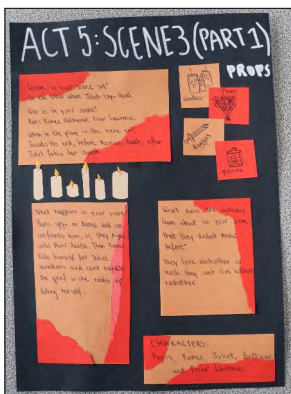 ACT 5: SCENE 3 (PART 1)
PROPS
candles
Flowers
dagger
poison
Where is your scene set?
In the tomb where Juliet lays dead.
Who is in your scene?
Paris, Romeo, Balthasar, Friar Lawrence.
When in the play is the scene set?
Towards the end, before Romeo's death, after
Juliet fakes her death.
What happens in your scene?
Paris spy's on Romeo and
confronts him, they fight
until Paris' death. Then Romeo
kills himself yet Juliet
awakens and can't handle
the grief so she ends up
killing herself.
What does the audience
learn about in your scene
that they didn't know
before?
they love eachother so
much they can't live without
eachother.
CHARACTERS:
Paris, Romeo, Juliet, Balthasar
and Friar Lawrence.